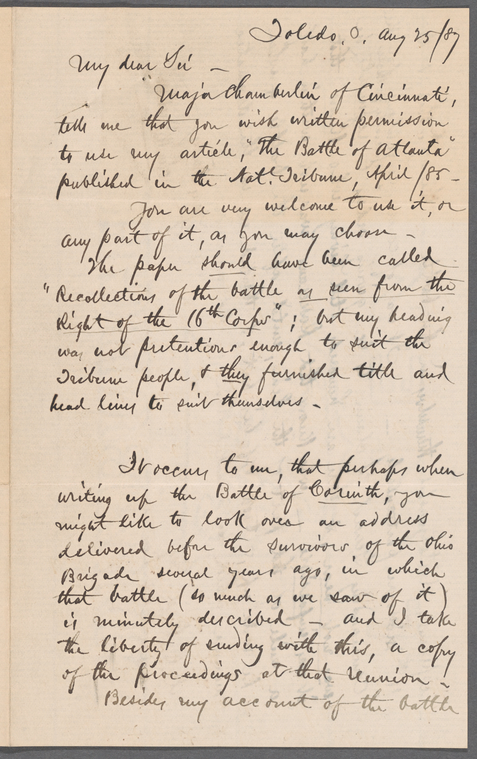 Toledo, O. Aug 25/87
My dear Sir —
Major Chamberlin of Cincinnati,
tells me that you wish written permission
to use my article, "The Battle of Atlanta"
published in the Natl. Tribune, April /85 —
You are very welcome to use it, or
any part of it, as you may choose —
The paper should have been called
"Recollections of the battle as seen from the
Right of the 16th Corps"; but my heading
was not pretentious enough to suit the
Tribune people, & they furnished title and
head lines to suit themselves —
It occurs to me, that perhaps when
writing up the Battle of Corinth, you
might like to look over an address
delivered before the survivors of the Ohio
Brigade several years ago, in which
that battle (so much as we saw of it)
is minutely described — and I take
the liberty of sending with this, a copy
of the proceedings at that reunion —
Besides my account of the battle